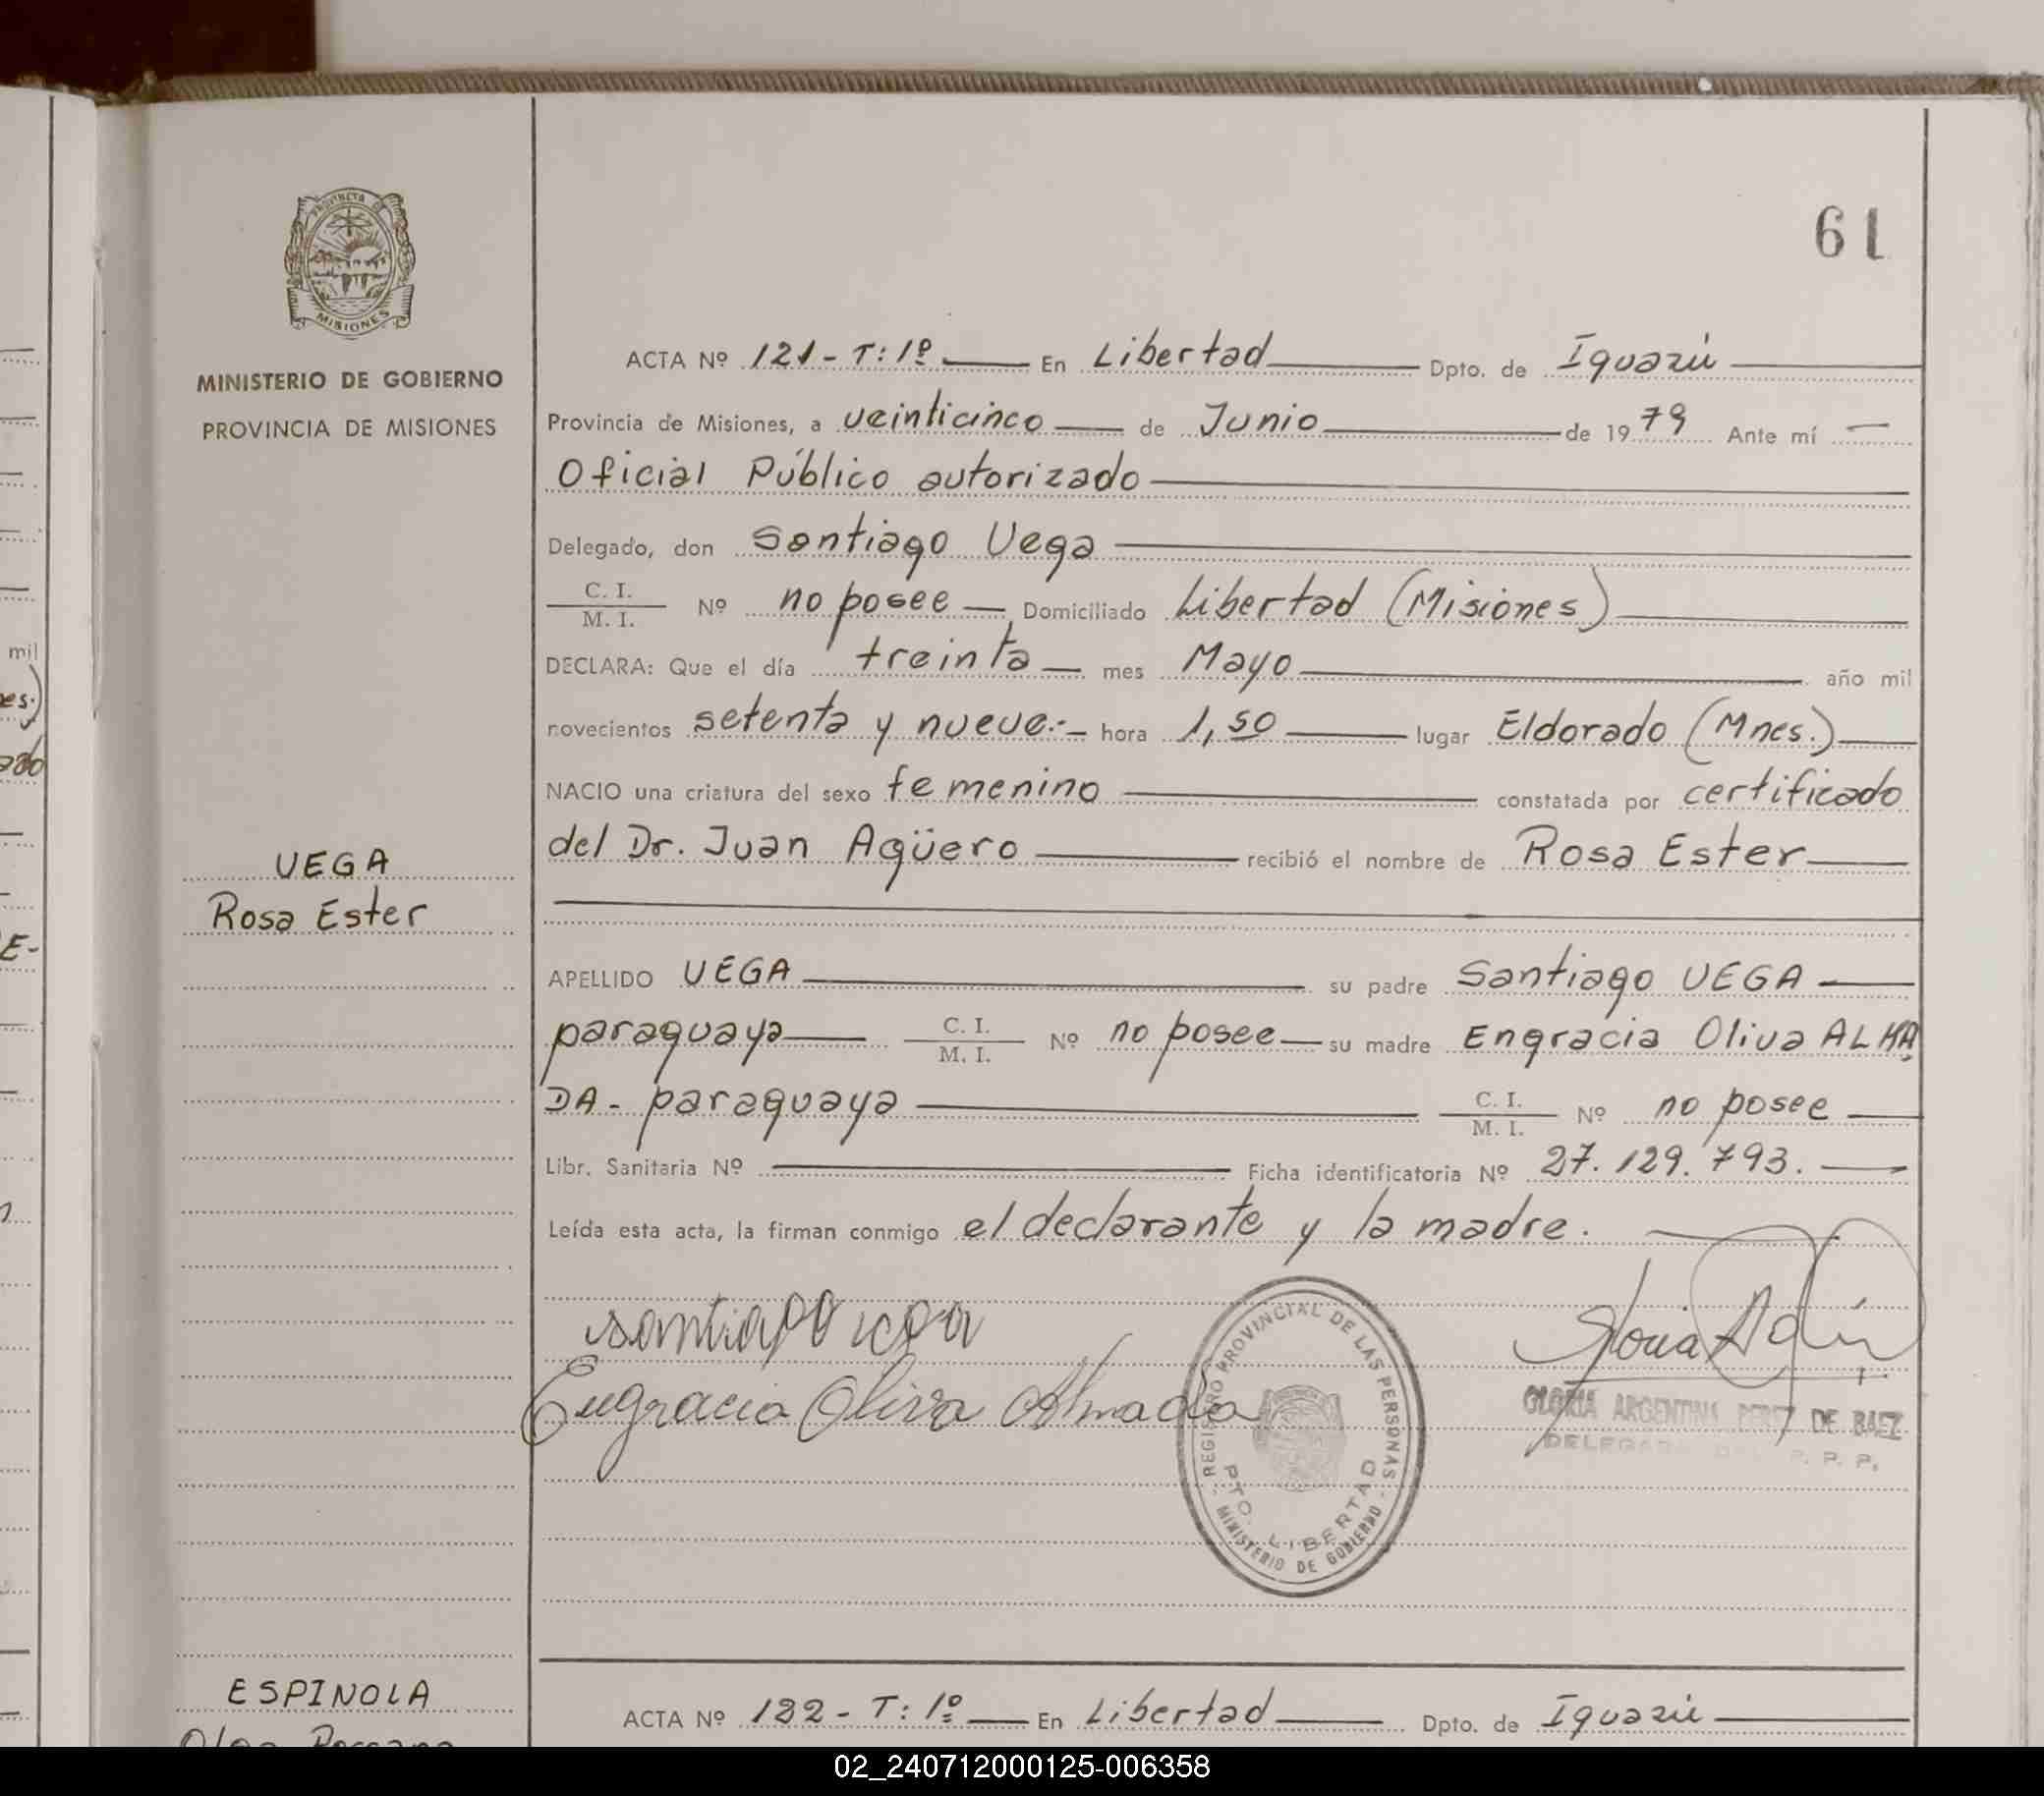 61
PROVINCIA DE
MISIONES
MINISTERIO DE GOBIERNO
PROVINCIA DE MISIONES
ACTA Nº 121 - T: 1º — En Libertad — Dpto. de Iguazú —
Provincia de Misiones, a veinticinco — de Junio — de 1979 Ante mí —
Oficial Público autorizado —
Delegado, don Santiago Vega —
C. I. / M. I. Nº no posee — Domiciliado Libertad (Misiones) —
DECLARA: Que el día treinta — mes Mayo — año mil
novecientos setenta y nueve.- hora 1,50 — lugar Eldorado (Mnes.) —
NACIO una criatura del sexo femenino — constatada por certificado
del Dr. Juan Agüero — recibió el nombre de Rosa Ester —
VEGA
Rosa Ester
APELLIDO VEGA — su padre Santiago VEGA —
paraguaya — C. I. / M. I. Nº no posee — su madre Engracia Oliva ALMA
DA - paraguaya — C. I. / M. I. Nº no posee —
Libr. Sanitaria Nº — Ficha identificatoria Nº 27.129.793. —
Leída esta acta, la firman conmigo el declarante y la madre. —
santiago
Engracia Oliva Almada
REGISTRO PROVINCIAL DE LAS PERSONAS
PTO. LIBERTAD
- MINISTERIO DE GOBIERNO -
Gloria
GLORIA ARGENTINA PEREZ DE BAEZ
R. P. P.
ESPINOLA
ACTA Nº 122 - T: 1º — En Libertad — Dpto. de Iguazú —
mil
es.)
ado
E-
02_240712000125-006358